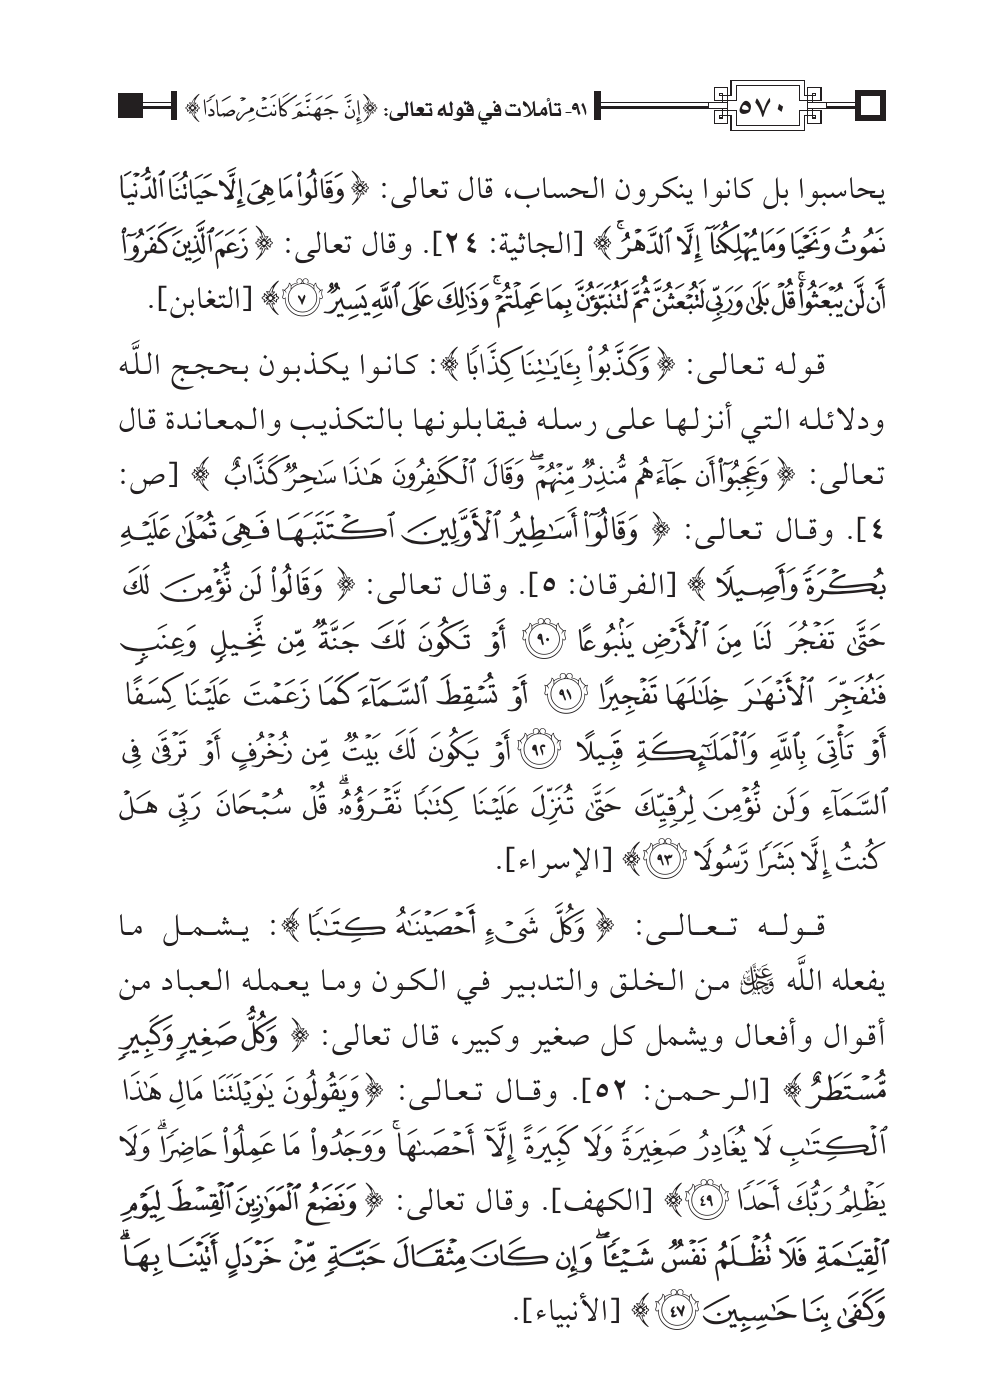 ٥٧٠
٩١- تأملات في قوله تعالى: ﴿إِنَّ جَهَنَّمَ كَانَتْ مِرْصَادًا﴾
يحاسبوا بل كانوا ينكرون الحساب، قال تعالى: ﴿وَقَالُوا۟ مَا هِىَ إِلَّا حَيَاتُنَا ٱلدُّنْيَا
نَمُوتُ وَنَحْيَا وَمَا يُهْلِكُنَآ إِلَّا ٱلدَّهْرُ ۚ﴾ [الجاثية: ٢٤]. وقال تعالى: ﴿زَعَمَ ٱلَّذِينَ كَفَرُوٓا۟
أَن لَّن يُبْعَثُوا۟ ۚ قُلْ بَلَىٰ وَرَبِّى لَتُبْعَثُنَّ ثُمَّ لَتُنَبَّؤُنَّ بِمَا عَمِلْتُمْ ۚ وَذَٰلِكَ عَلَى ٱللَّهِ يَسِيرٌ ٧﴾ [التغابن].
قوله تعالى: ﴿وَكَذَّبُوا۟ بِـَٔايَـٰتِنَا كِذَّابًا﴾: كانوا يكذبون بحجج اللَّه
ودلائله التي أنزلها على رسله فيقابلونها بالتكذيب والمعاندة قال
تعالى: ﴿وَعَجِبُوٓا۟ أَن جَآءَهُم مُّنذِرٌ مِّنْهُمْ ۖ وَقَالَ ٱلْكَـٰفِرُونَ هَـٰذَا سَـٰحِرٌ كَذَّابٌ﴾ [ص:
٤]. وقال تعالى: ﴿وَقَالُوٓا۟ أَسَـٰطِيرُ ٱلْأَوَّلِينَ ٱكْتَتَبَهَا فَهِىَ تُمْلَىٰ عَلَيْهِ
بُكْرَةً وَأَصِيلًا﴾ [الفرقان: ٥]. وقال تعالى: ﴿وَقَالُوا۟ لَن نُّؤْمِنَ لَكَ
حَتَّىٰ تَفْجُرَ لَنَا مِنَ ٱلْأَرْضِ يَنۢبُوعًا ٩٠ أَوْ تَكُونَ لَكَ جَنَّةٌ مِّن نَّخِيلٍ وَعِنَبٍ
فَتُفَجِّرَ ٱلْأَنْهَـٰرَ خِلَـٰلَهَا تَفْجِيرًا ٩١ أَوْ تُسْقِطَ ٱلسَّمَآءَ كَمَا زَعَمْتَ عَلَيْنَا كِسَفًا
أَوْ تَأْتِىَ بِٱللَّهِ وَٱلْمَلَـٰٓئِكَةِ قَبِيلًا ٩٢ أَوْ يَكُونَ لَكَ بَيْتٌ مِّن زُخْرُفٍ أَوْ تَرْقَىٰ فِى
ٱلسَّمَآءِ وَلَن نُّؤْمِنَ لِرُقِيِّكَ حَتَّىٰ تُنَزِّلَ عَلَيْنَا كِتَـٰبًا نَّقْرَؤُهُۥ ۗ قُلْ سُبْحَانَ رَبِّى هَلْ
كُنتُ إِلَّا بَشَرًا رَّسُولًا ٩٣﴾ [الإسراء].
قوله تعالى: ﴿وَكُلَّ شَىْءٍ أَحْصَيْنَـٰهُ كِتَـٰبًا﴾: يشمل ما
يفعله اللَّه عَزَّ وَجَلَّ من الخلق والتدبير في الكون وما يعمله العباد من
أقوال وأفعال ويشمل كل صغير وكبير، قال تعالى: ﴿وَكُلُّ صَغِيرٍ وَكَبِيرٍ
مُّسْتَطَرٌ﴾ [الرحمن: ٥٢]. وقال تعالى: ﴿وَيَقُولُونَ يَـٰوَيْلَتَنَا مَالِ هَـٰذَا
ٱلْكِتَـٰبِ لَا يُغَادِرُ صَغِيرَةً وَلَا كَبِيرَةً إِلَّآ أَحْصَىٰهَا ۚ وَوَجَدُوا۟ مَا عَمِلُوا۟ حَاضِرًا ۗ وَلَا
يَظْلِمُ رَبُّكَ أَحَدًا ٤٩﴾ [الكهف]. وقال تعالى: ﴿وَنَضَعُ ٱلْمَوَٰزِينَ ٱلْقِسْطَ لِيَوْمِ
ٱلْقِيَـٰمَةِ فَلَا تُظْلَمُ نَفْسٌ شَيْـًٔا ۖ وَإِن كَانَ مِثْقَالَ حَبَّةٍ مِّنْ خَرْدَلٍ أَتَيْنَا بِهَا ۗ
وَكَفَىٰ بِنَا حَـٰسِبِينَ ٤٧﴾ [الأنبياء].